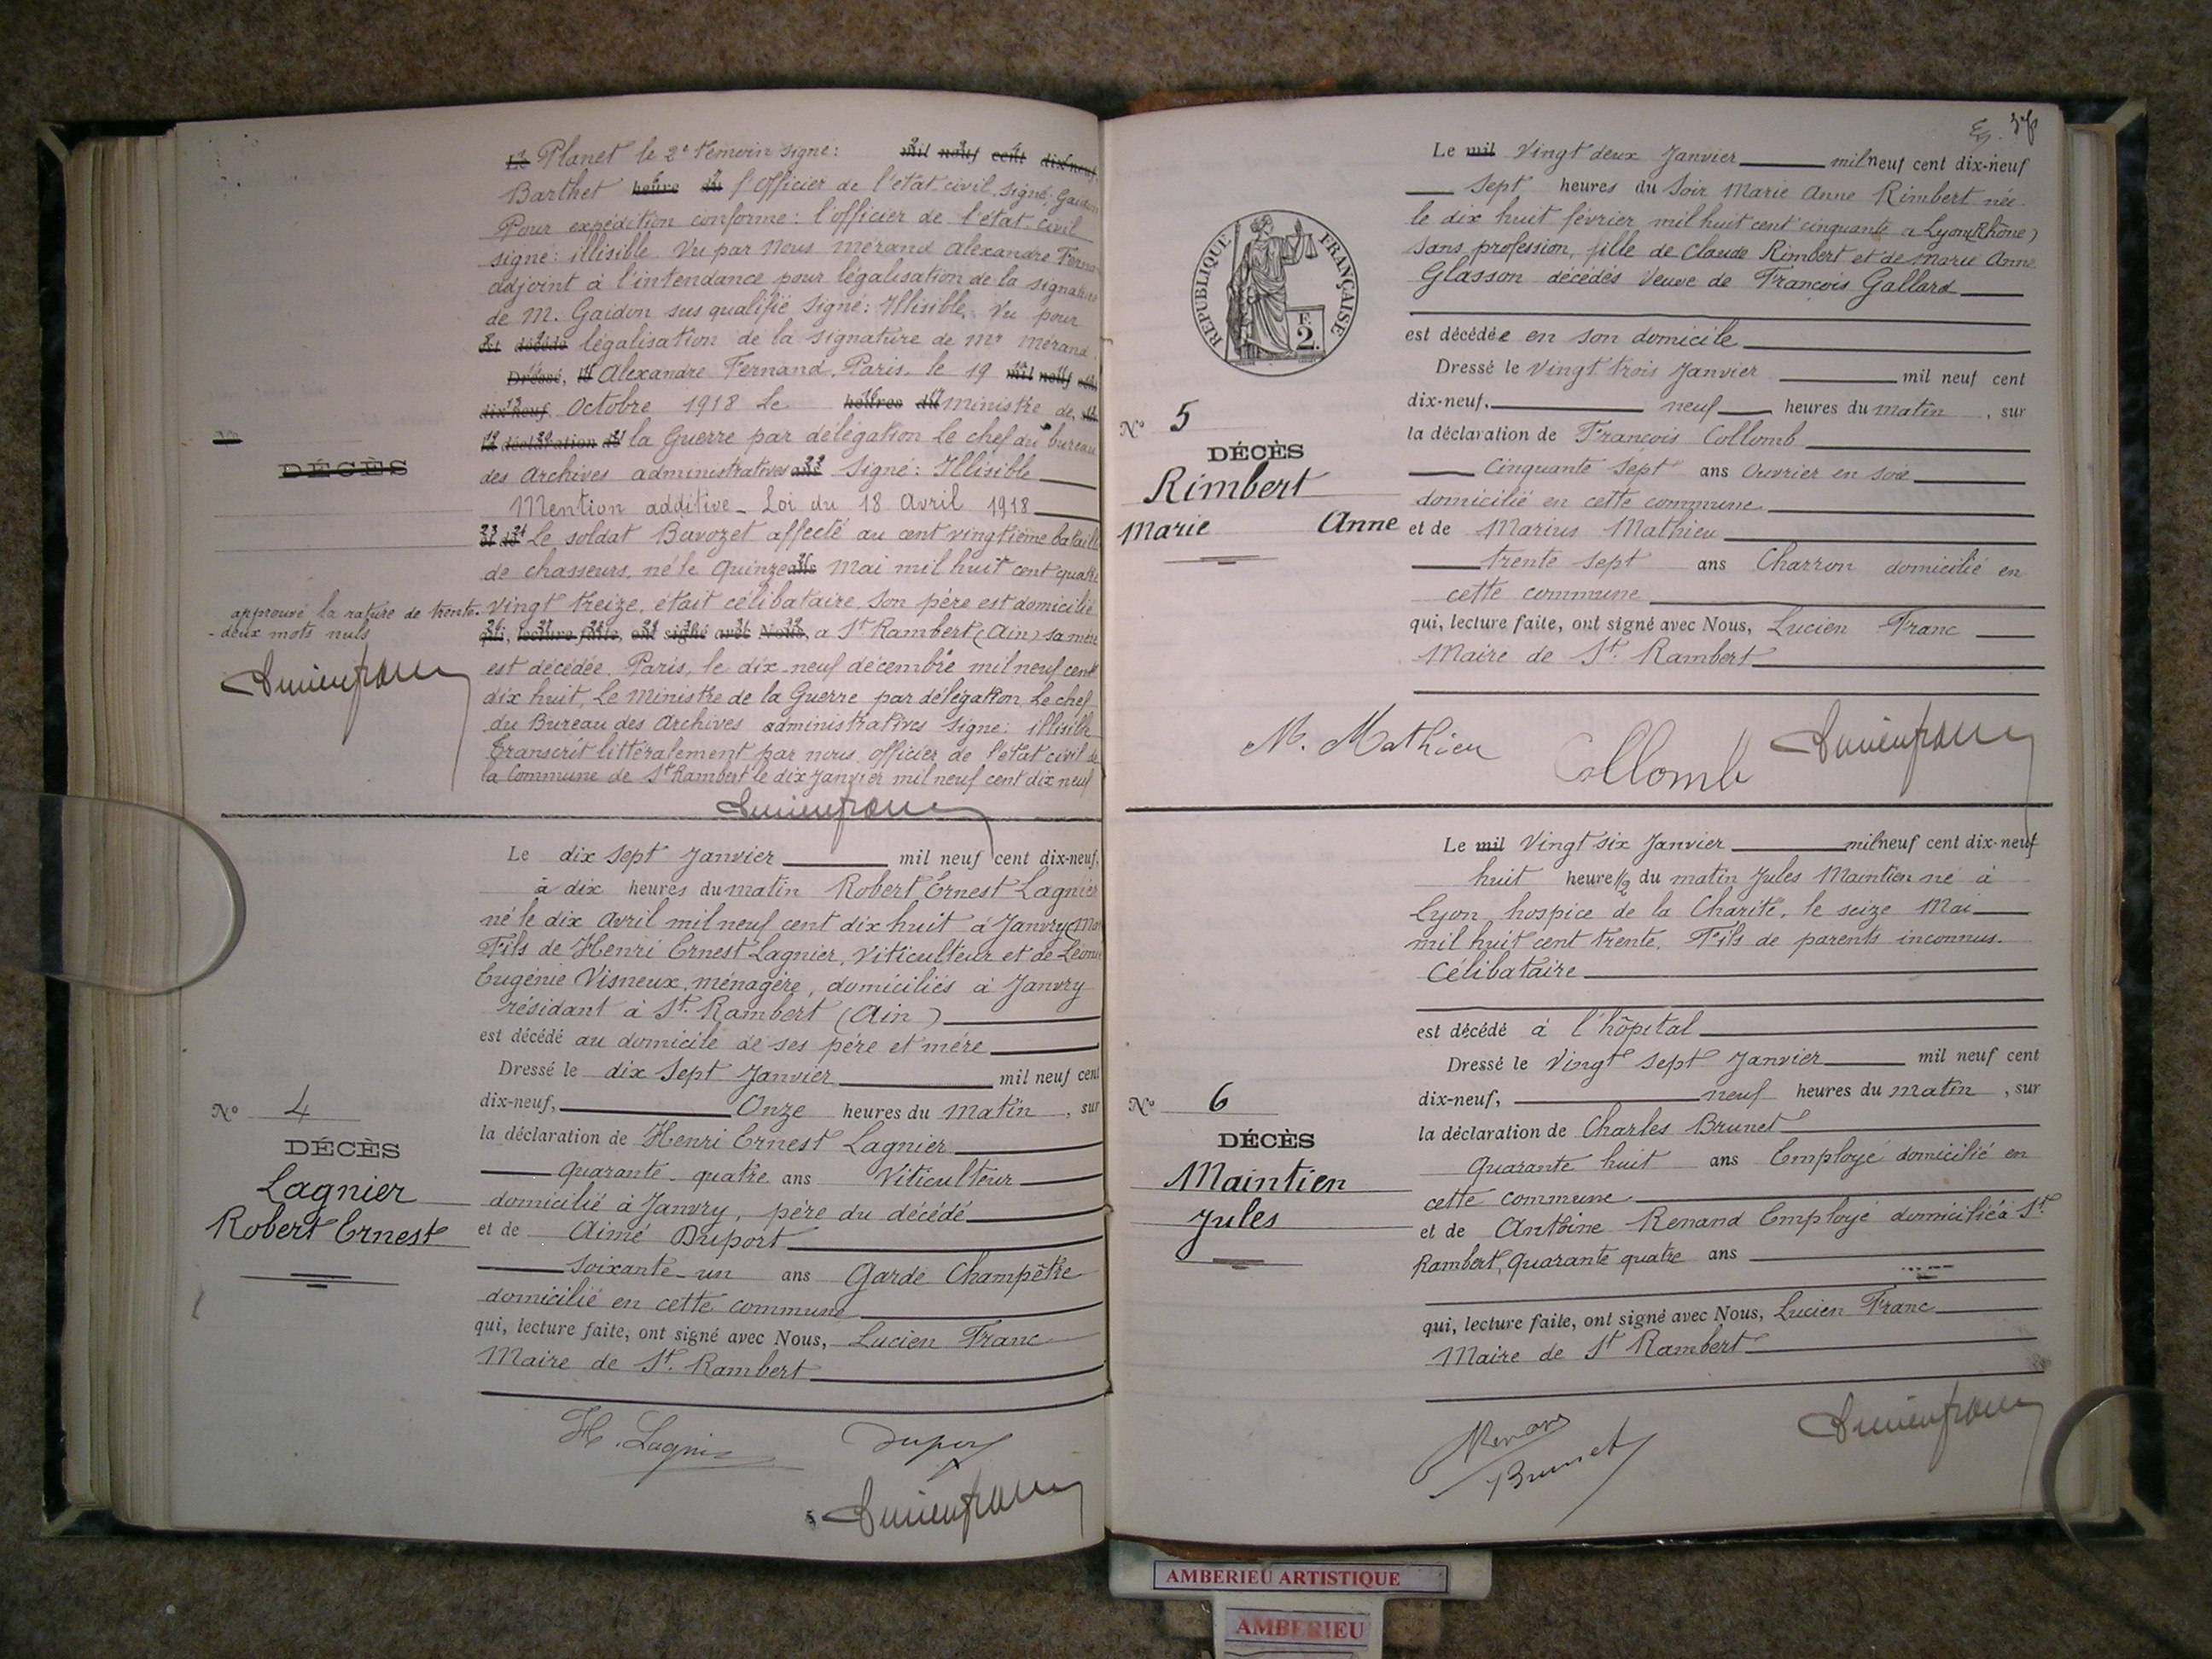 Le Planet le 2e témoin signé: mil neuf cent dix-neuf,
Barthet heure du l'Officier de l'état civil, signé: Gaidon
Pour expédition conforme: l'officier de l'état civil
signé: illisible. Vu par Nous Mérand Alexandre Fernand
adjoint à l'intendance pour légalisation de la signature
de M. Gaidon sus qualifié signé: Illisible. Vu pour
Est décédé légalisation de la signature de Mr Mérand
Dressé, le Alexandre Fernand. Paris, le 19 mil neuf cent
dix-neuf, Octobre 1918 Le heures du Ministre de, sur
la déclaration de la Guerre par délégation Le chef du bureau
des Archives administratives ans Signé: Illisible
Mention additive _ Loi du 18 Avril 1918
et de Le soldat Bavozet affecté au cent vingtième bataillon
de chasseurs, né le Quinze ans Mai mil huit cent quatre
vingt treize, était célibataire, son père est domicilié
qui, lecture faite, ont signé avec Nous, a St Rambert (Ain) sa mère
est décédée. Paris, le dix-neuf décembre mil neuf cent
dix huit, Le Ministre de la Guerre par délégation, Le chef
du Bureau des Archives administratives signé: illisible
Transcrit littéralement par nous, officier de l'état civil de
la Commune de St Rambert le dix Janvier mil neuf cent dix neuf
Lucien Franc
No
DÉCÈS
approuvé la rature de trente-
-deux mots nuls
Lucien Franc
Le dix sept Janvier mil neuf cent dix-neuf,
à dix heures du matin Robert Ernest Lagnier
né le dix Avril mil neuf cent dix huit à Janvry
Fils de Henri Ernest Lagnier, Viticulteur et de Léonie
Eugénie Visneux, ménagère, domiciliés à Janvry
résidant à St. Rambert (Ain)
est décédé au domicile de ses père et mère
Dressé le dix Sept Janvier mil neuf cent
dix-neuf, Onze heures du Matin, sur
la déclaration de Henri Ernest Lagnier
quarante-quatre ans Viticulteur
domicilié à Janvry, père du décédé
et de Aimé Duport
soixante-un ans Garde Champêtre
domicilié en cette commune
qui, lecture faite, ont signé avec Nous, Lucien Franc
Maire de St. Rambert
No 4
DÉCÈS
Lagnier
Robert Ernest
H. Lagnier Duport
Lucien Franc
Le mil Vingt deux Janvier mil neuf cent dix-neuf
Sept heures du Soir Marie Anne Rimbert née
le dix huit février mil huit cent cinquante a Lyon (Rhône)
Sans profession, fille de Claude Rimbert et de Marie Anne
Glasson décédés Veuve de François Gallard
est décédée en son domicile
Dressé le Vingt trois Janvier mil neuf cent
dix-neuf, neuf heures du matin, sur
la déclaration de François Collomb
Cinquante Sept ans Ouvrier en soie
domicilié en cette commune
et de Marius Mathieu
trente sept ans Charron domicilié en
cette commune
qui, lecture faite, ont signé avec Nous, Lucien Franc
Maire de St. Rambert
REPUBLIQUE FRANÇAISE
F.
2.
No 5
DÉCÈS
Rimbert
Marie Anne
M. Mathieu Collomb Lucien Franc
Le mil Vingt six Janvier mil neuf cent dix-neuf
huit heure 1/2 du matin Jules Maintien né à
Lyon, hospice de la Charité, le seize Mai
mil huit cent trente. Fils de parents inconnus.
Célibataire
est décédé à l'hôpital
Dressé le Vingt sept Janvier mil neuf cent
dix-neuf, neuf heures du matin, sur
la déclaration de Charles Brunet
Quarante huit ans Employé domicilié en
cette commune
et de Antoine Renand Employé domicilié à St.
Rambert, Quarante quatre ans
qui, lecture faite, ont signé avec Nous, Lucien Franc
Maire de St Rambert
No 6
DÉCÈS
Maintien
Jules
Renand
Brunet
Lucien Franc
AMBERIEU ARTISTIQUE
AMBERIEU